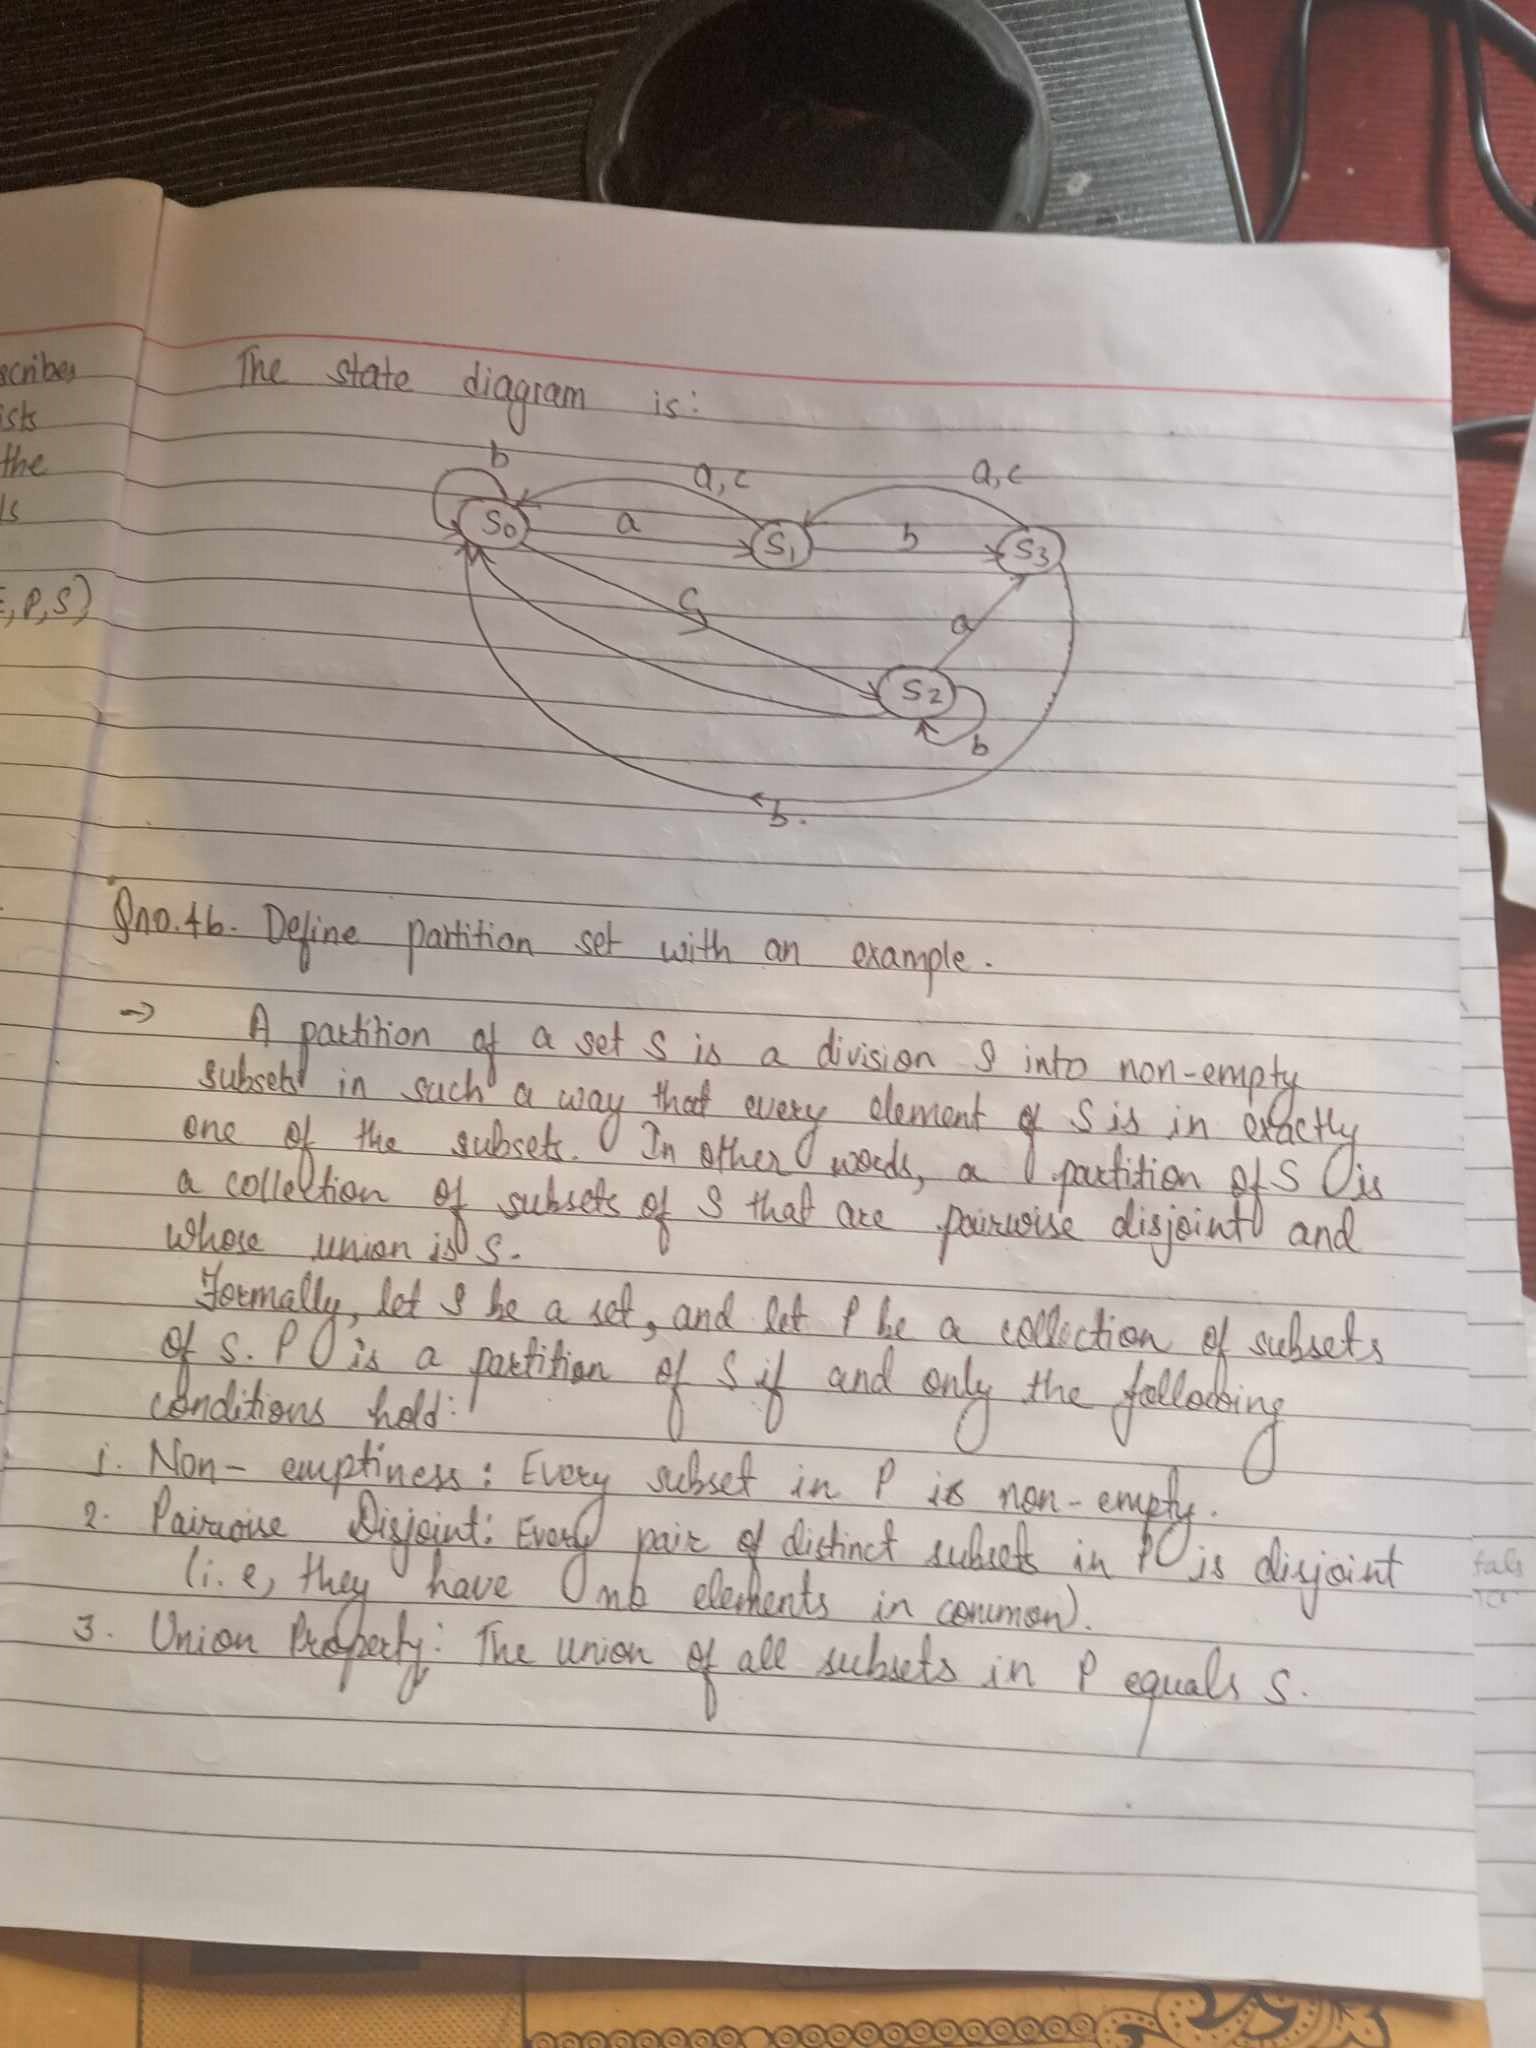 scribes
ists
the
ls
E, P, S)
The state diagram is:
b
a, c
a, c
S0
a
S1
b
S3
c
a
S2
b
b.
Qno.4b. Define partition set with an example.
→ A partition of a set S is a division S into non-empty
subsets in such a way that every element of S is in exactly
one of the subsets. In other words, a partition of S is
a collection of subsets of S that are pairwise disjoint and
whose union is S.
Formally, let S be a set, and let P be a collection of subsets
of S. P is a partition of S if and only the following
conditions hold:
1. Non-emptiness: Every subset in P is non-empty.
2. Pairwise Disjoint: Every pair of distinct subsets in P is disjoint
(i.e, they have no elements in common).
3. Union Property: The union of all subsets in P equals S.